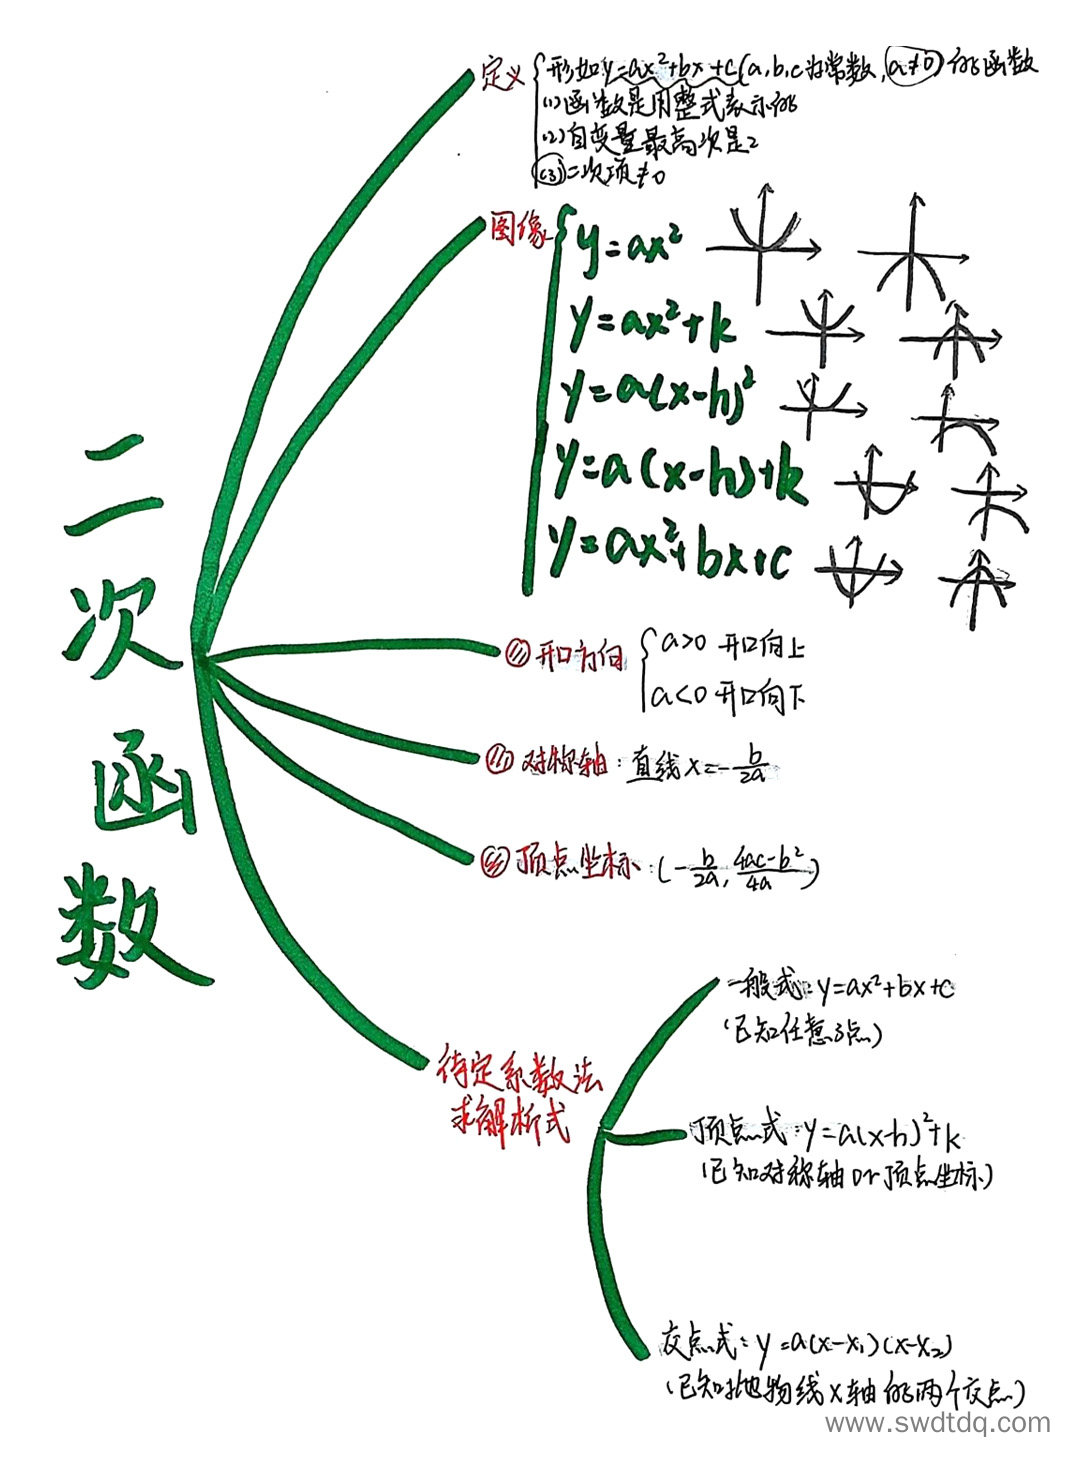 二次函数
定义
形如y=ax²+bx+c(a,b,c为常数,a≠0)的函数
(1)函数是用整式表示的
(2)自变量最高次是2
(3)二次项≠0
图像
y=ax²
y=ax²+k
y=a(x-h)²
y=a(x-h)+k
y=ax²+bx+c
开口方向
a>0 开口向上
a<0 开口向下
对称轴:直线x=-b/2a
顶点坐标:(-b/2a,4ac-b²/4a)
待定系数法
求解析式
一般式:y=ax²+bx+c
(已知任意3点)
顶点式:y=a(x-h)²+k
(已知对称轴or顶点坐标)
交点式:y=a(x-x₁)(x-x₂)
(已知抛物线x轴的两个交点)
www.swdtdq.com